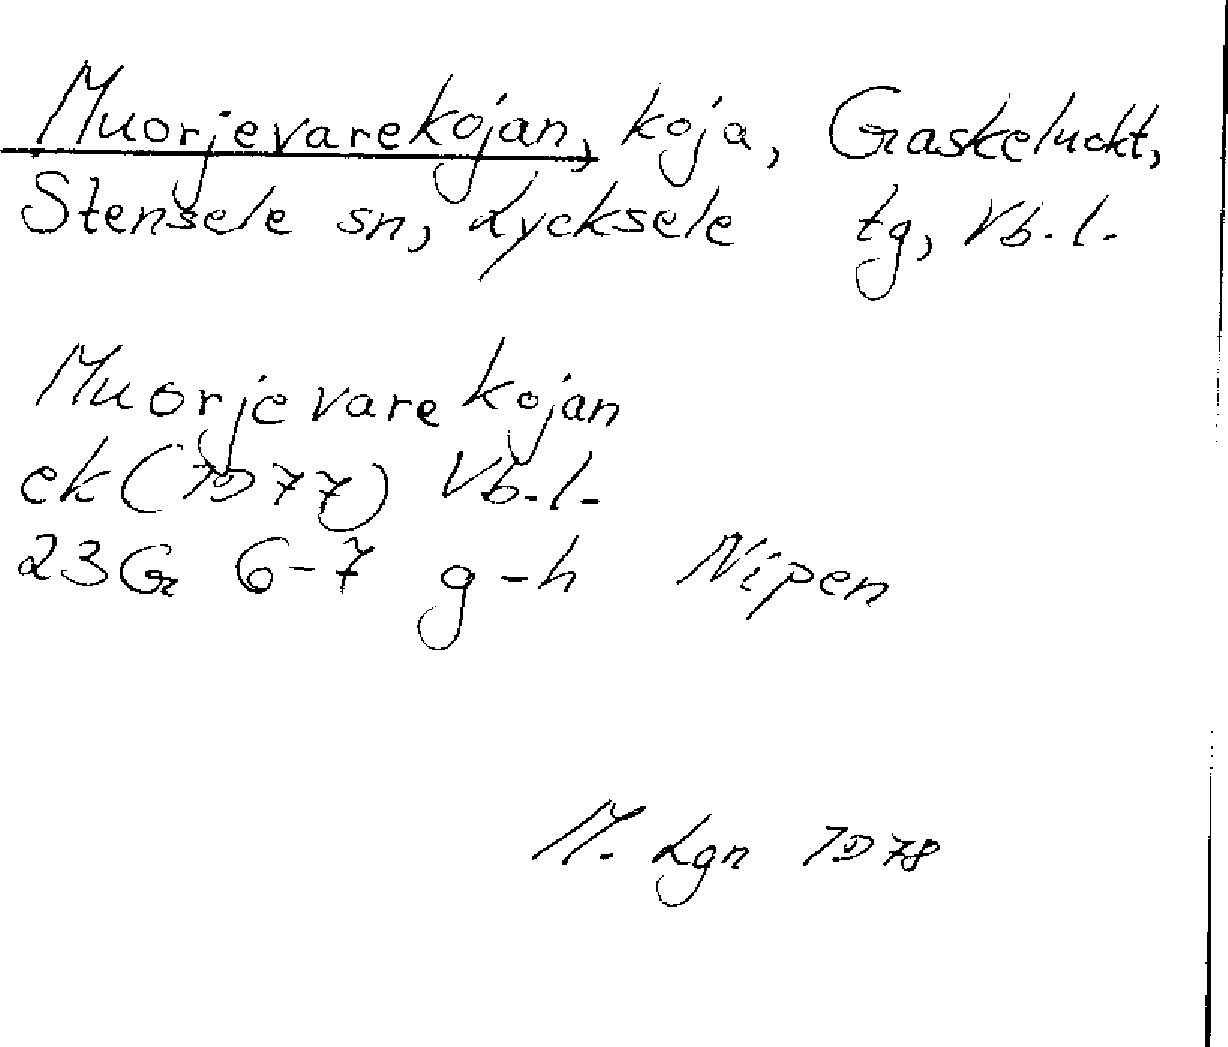 Muorjevarekojan, koja, Gaskeluckt,
Stensele sn, Lycksele tg, Vb.l.
Muorjevarekojan
ek (1977) Vb.l.
23G 6-7 g-h Nipen
M. Lgn 1978